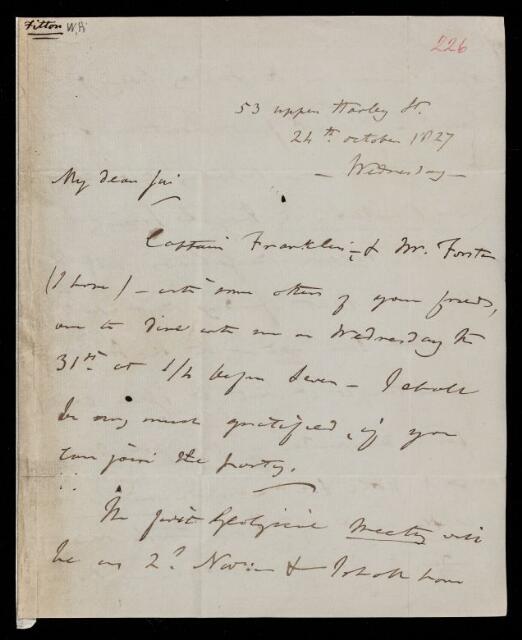 Fitton W.H
226
53 upper Harley St.
24th october 1827
- Wednesday -
My dear Sir
Captain Franklin, & Mr. Forster
(I hope) - with some others of your friends,
are to dine with me on Wednesday the
31st. at 1/4 before Seven - I shall
be very much gratified, if you
can join the party.
The first Geological Meeting will
be on 2d Nov. & I shall have